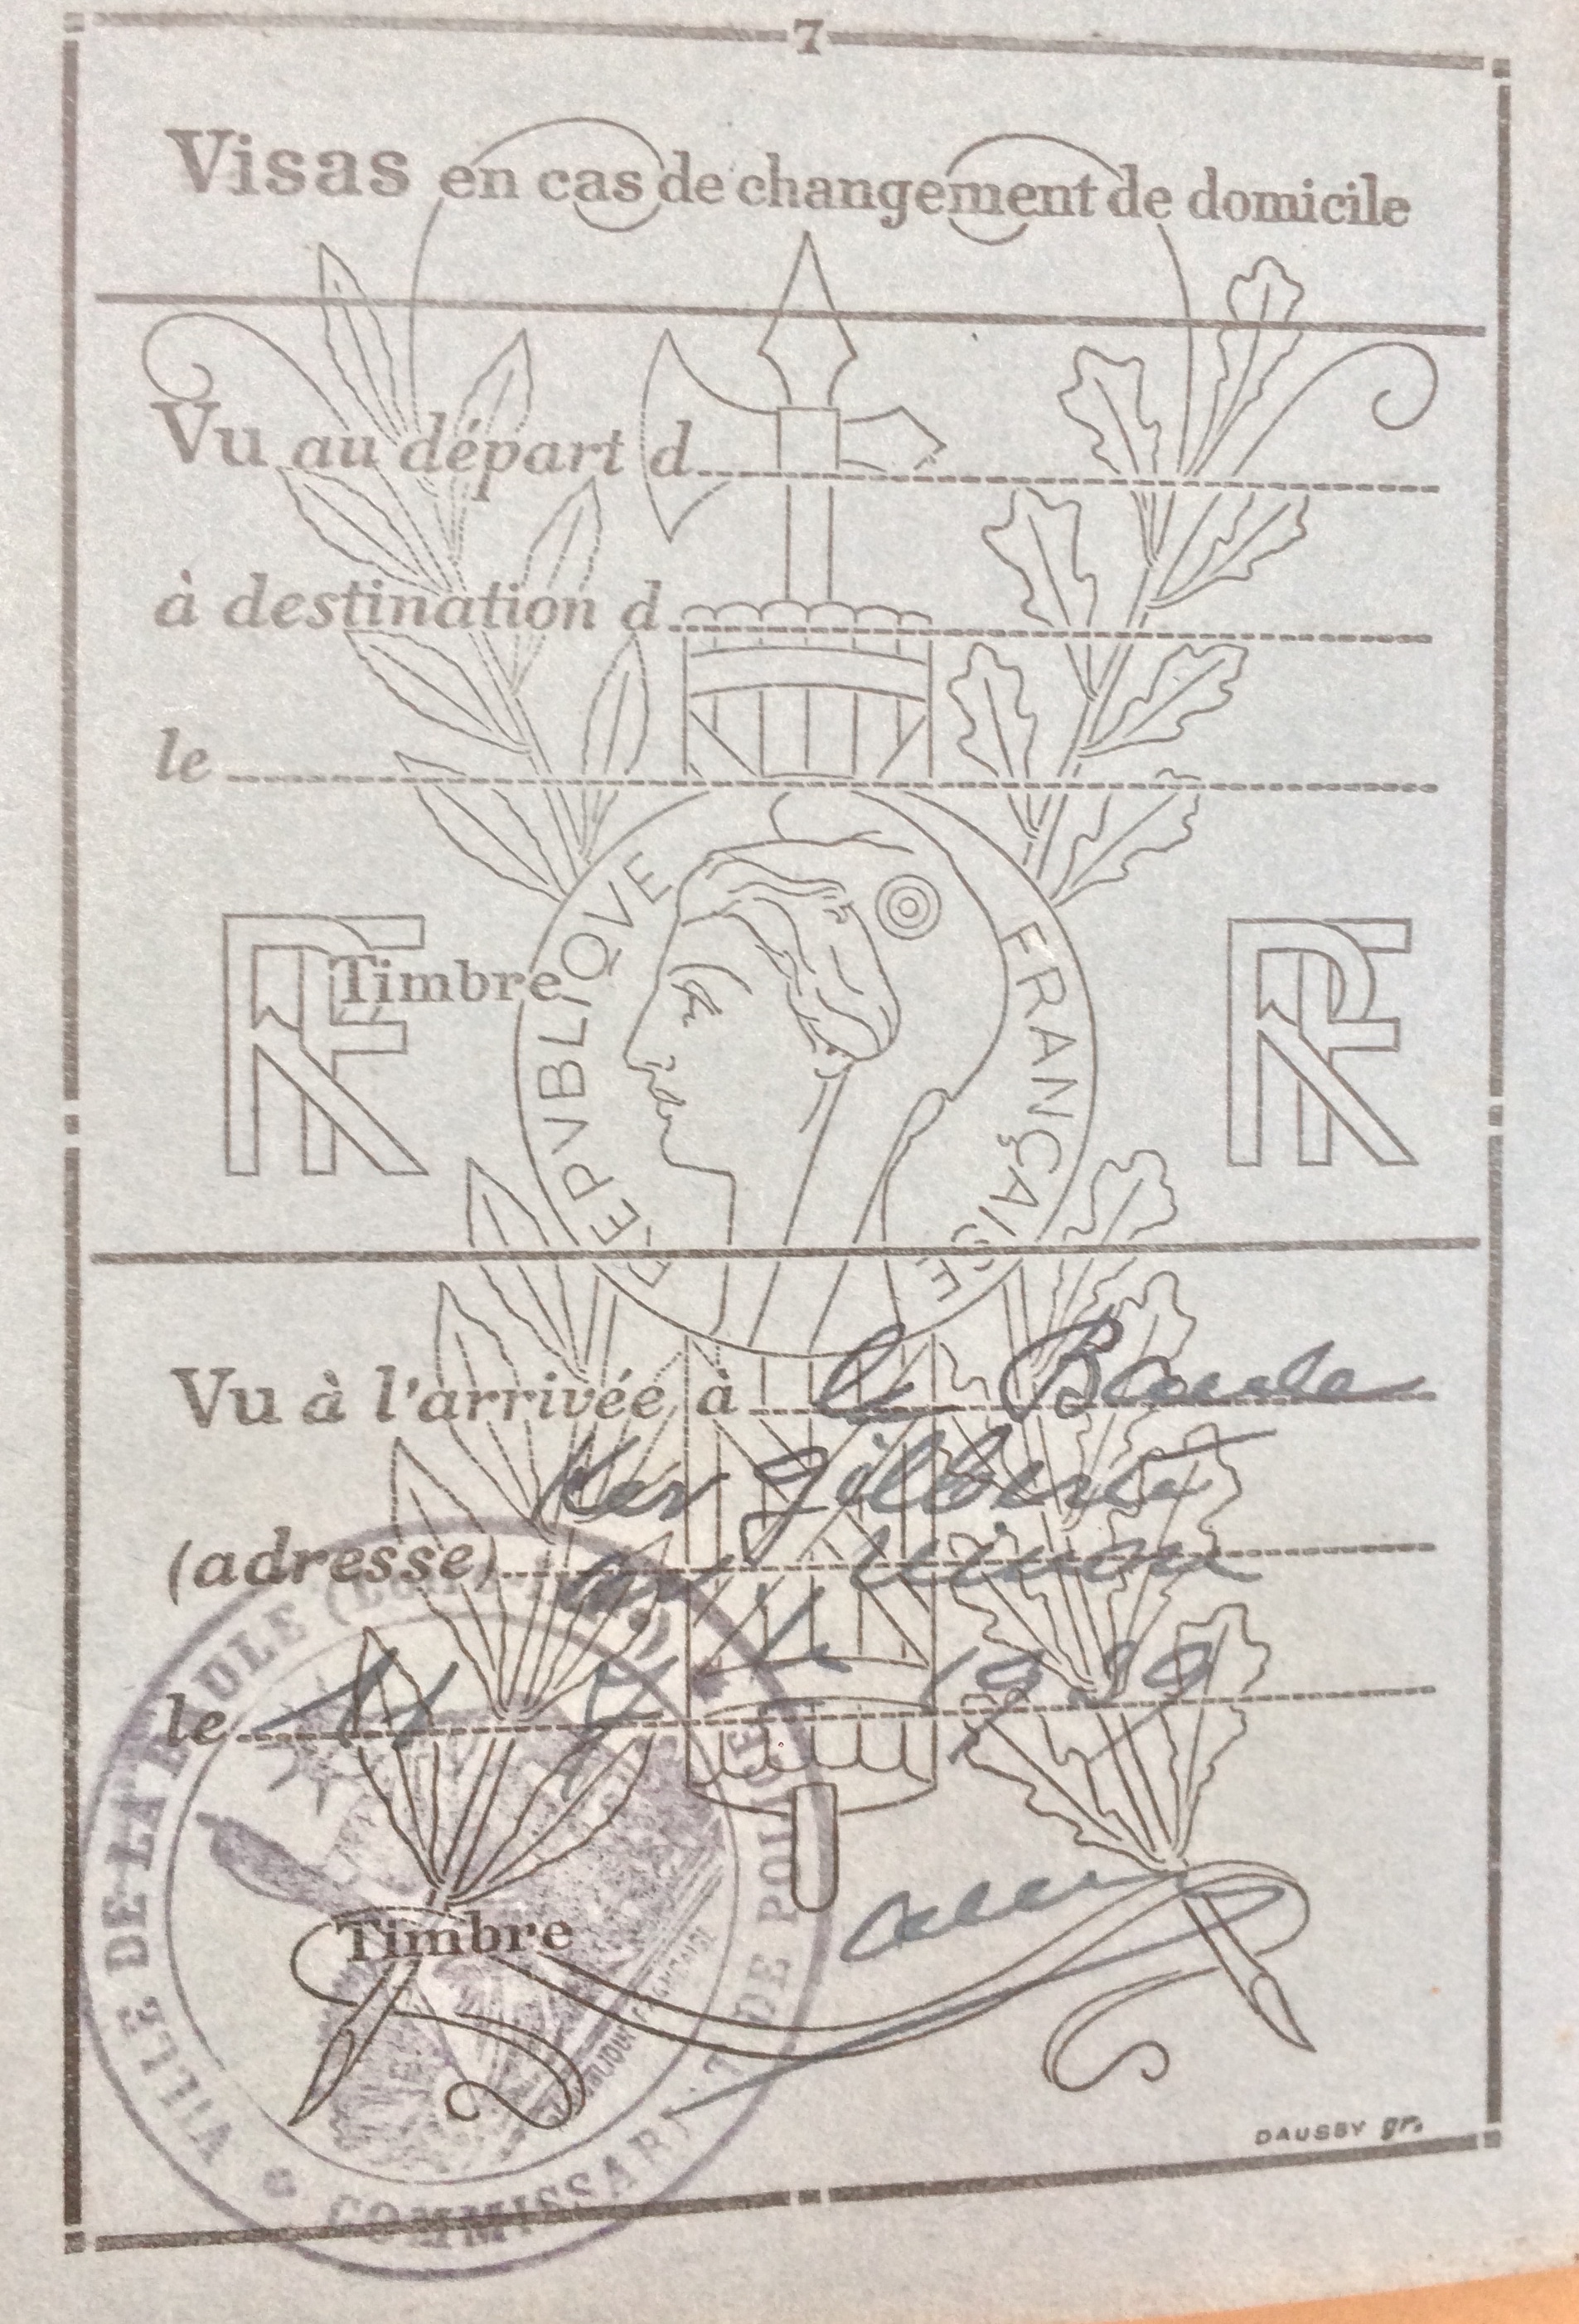 7
Visas en cas de changement de domicile
Vu au départ d
à destination d
le
RF
Timbre
REPVBLIQVE FRANÇAISE
RF
Vu à l'arrivée à la Baule
Ker Gilberte
(adresse)
le 11 1939
Timbre
VILLE DE LA BAULE
COMMISSARIAT DE POLICE
DAUSSY gr.